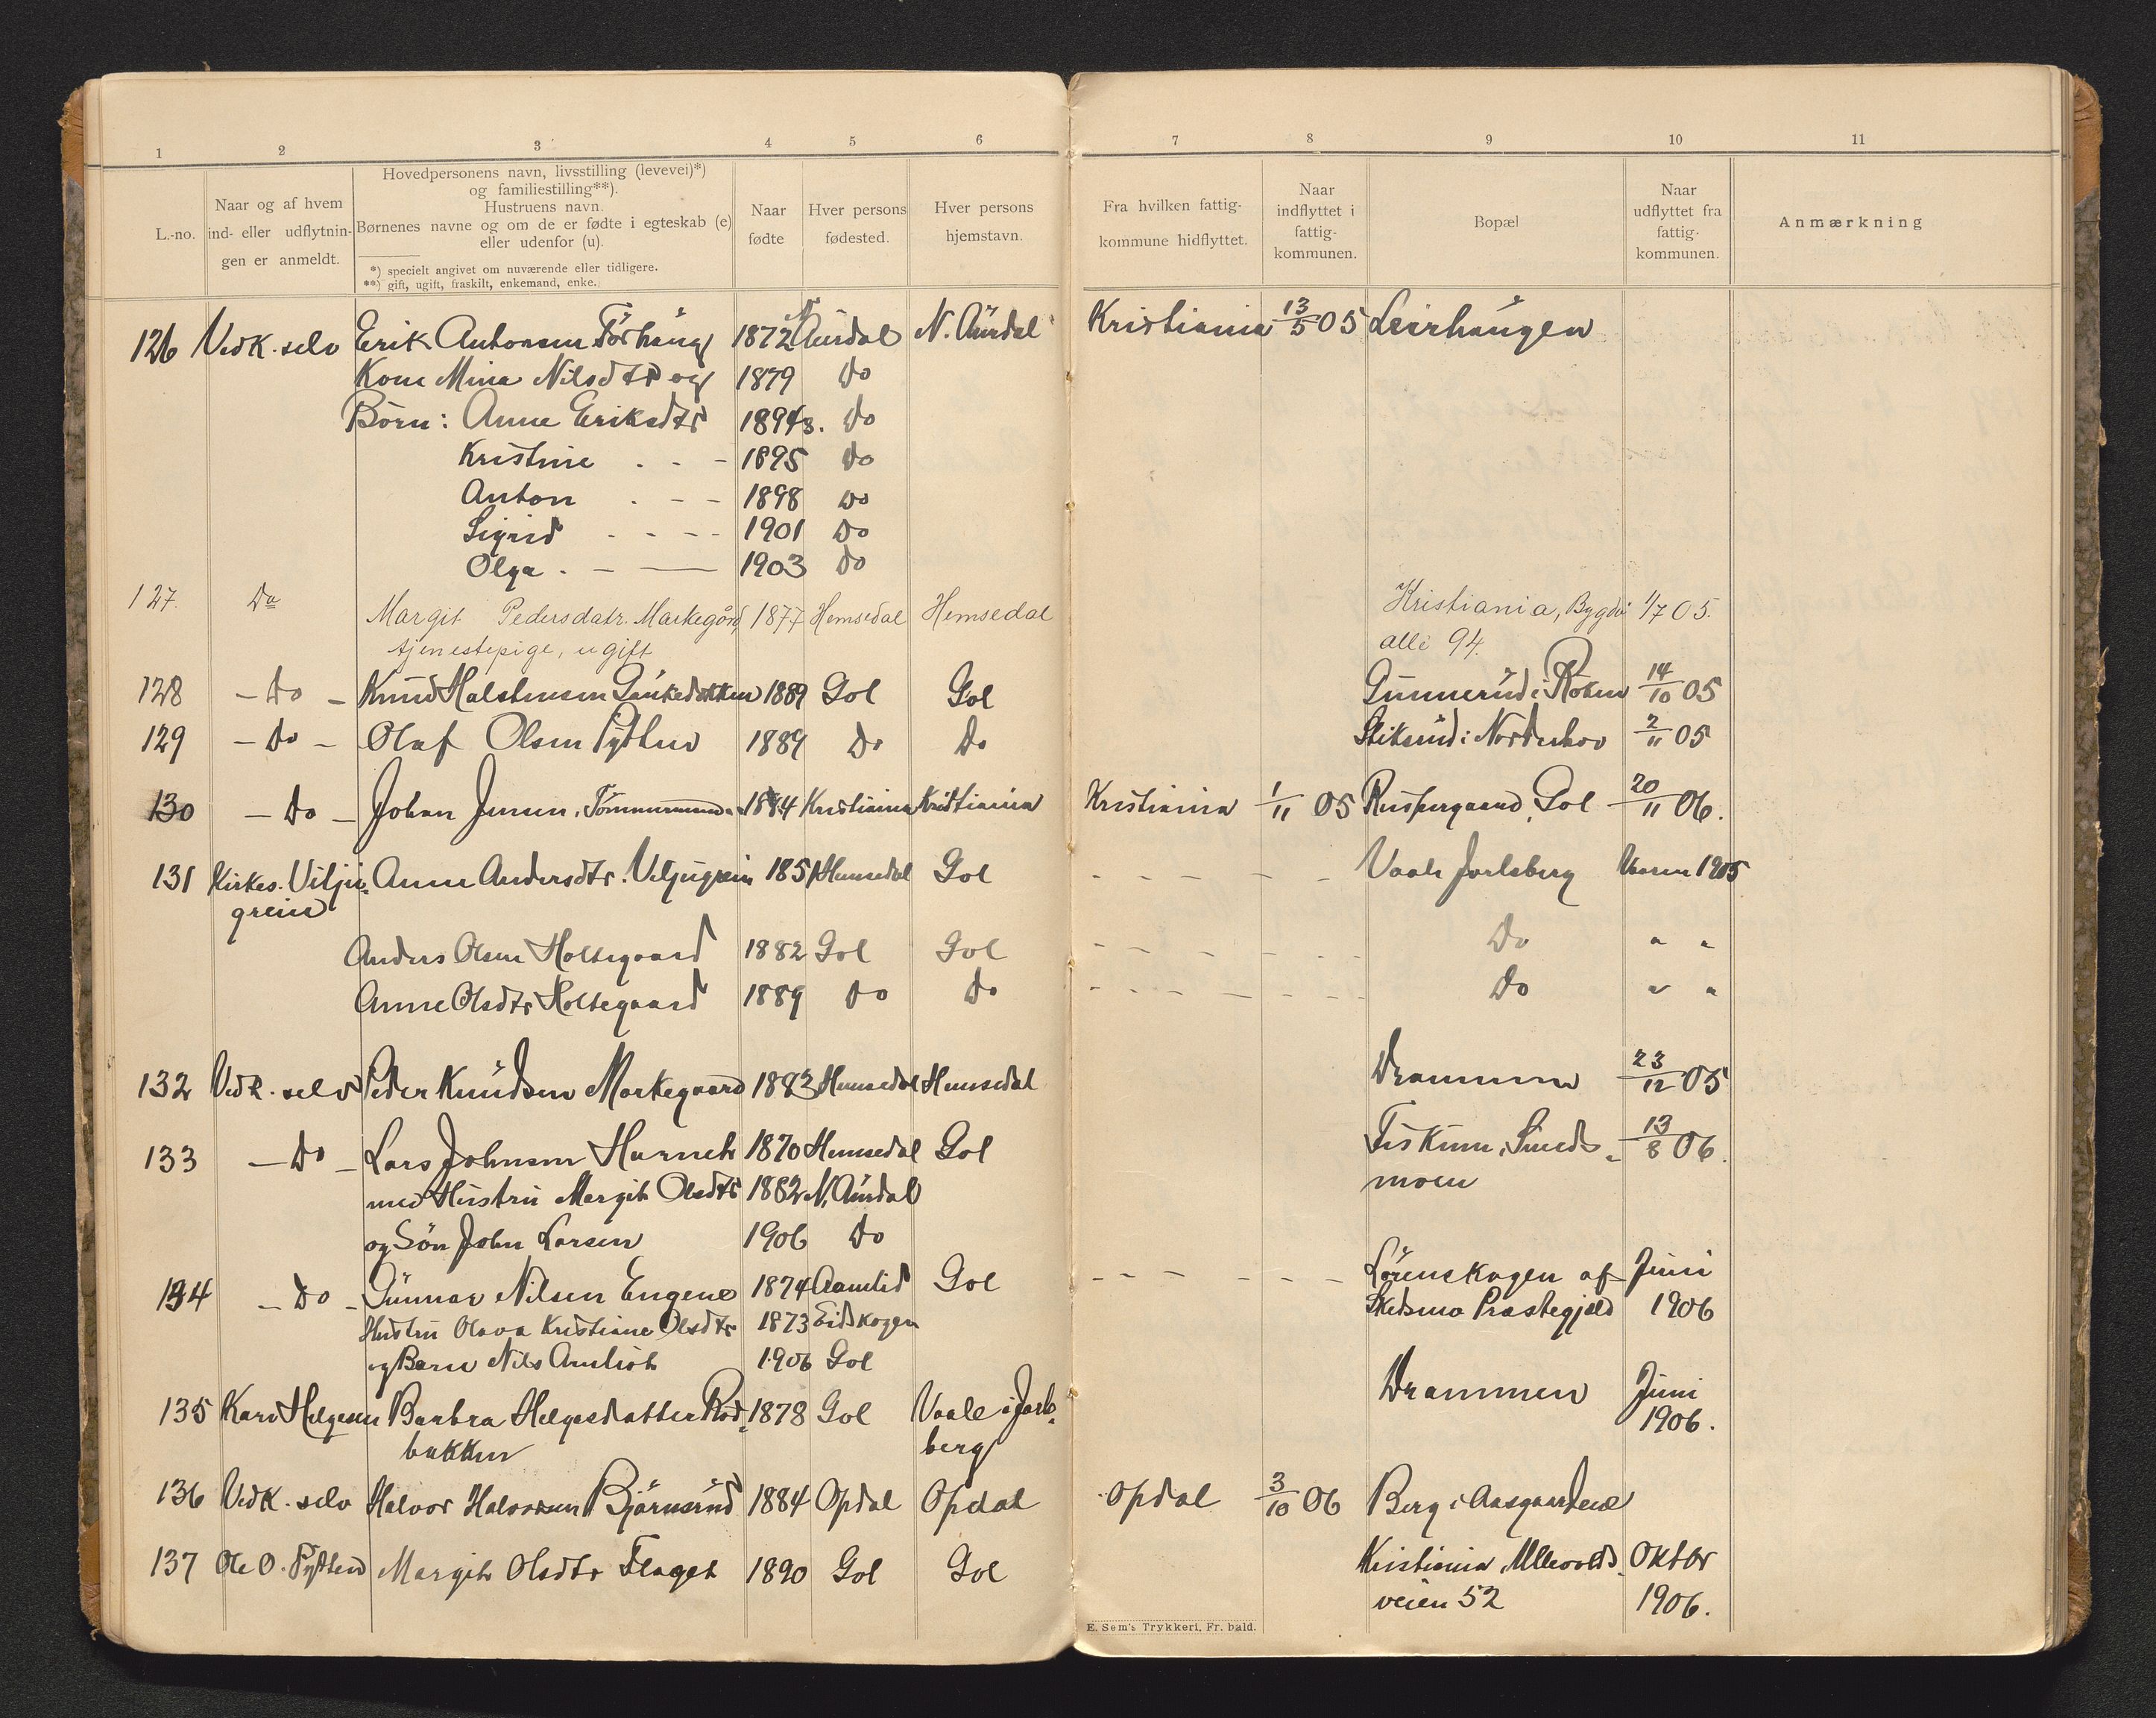 1 2 3 4 5 6 7 8 9 10 11
L.-no.
Naar og af hvem
ind- eller udflytnin-
gen er anmeldt.
Hovedpersonens navn, livsstilling (levevei)*)
og familiestilling**).
Hustruens navn.
Børnenes navne og om de er fødte i egteskab (e)
eller udenfor (u).
*) specielt angivet om nuværende eller tidligere.
**) gift, ugift, fraskilt, enkemand, enke.
Naar
fødte
Hver persons
fødested.
Hver persons
hjemstavn.
Fra hvilken fattig-
kommune hidflyttet.
Naar
indflyttet i
fattig-
kommunen.
Bopæl
Naar
udflyttet fra
fattig-
kommunen.
Anmærkning
126 Vedk. selv Erik Antonsen 1872 N. Aurdal N. Aurdal Kristiania 13/5 05 Leirhaugen
Kone Mina Nilsdtr og 1879 Do
Børn: Anne Eriksdtr 1894 Do
Kristine . - - 1895 Do
Anton . - - 1898 Do
Sigrid - - - - 1901 Do
Olga . - — 1903 Do
127. Do Margit Pedersdatr. Markegård, 1877 Hemsedal Hemsedal Kristiania, Bygdø 1/7 05.
tjenestepige, ugift alle 94.
128 - Do - Knud Halstensen 1889 Gol Gol Gunnerud i Røken 14/10 05
129 - Do - Olaf Olsen Pytten 1889 Do Do Stiksrud i Norderhov 2/11 05
130 - Do - Johan Jensen, Tømmermand 1884 Kristiania Kristiania Kristiania 1/11 05 Gol 20/11 06.
131 Kirkes. Vilju- Anne Andersdtr. Viljugrein 1851 Hemsedal Gol - - - - - Vaale Jarlsberg Vaaren 1905
grein
Anders Olsen Holtegaard 1882 Gol Gol - - - - - - Do " "
Anne Olsdtr Holtegaard 1889 Do Do - - - - - - - Do " "
132 Vedk. selv Peder Knudsen Markegaard 1883 Hemsedal Hemsedal Drammen 23/12 05
133 - Do - Lars Johnsen 1870 Hemsedal Gol Fiskum, Smeds- 13/8 06.
med Hustru Margit Olsdtr 1882 N. Aurdal moen
og Søn John Larsen 1906 Do
134 - Do - Gunnar Nilsen Engene 1874 Aamlid Gol - - - - - - Lørenskogen af Juni
Hustru Olava Kristiane Olsdtr 1873 Eidskogen Skedsmo Præstegjeld 1906
og Barn Nils 1906 Gol
135 Kari Helgesen Barbra Helgesdatter Rod- 1878 Gol Vaale i Jarls- Drammen Juni
bakken berg 1906.
136 Vedk. selv Halvor Halvorsen Bjørnerud 1884 Opdal Opdal Opdal 3/10 06 Berg i Aasgaardene
137 Ole O. Pytten Margit Olsdtr Flaget 1890 Gol Gol Kristiania, Ullevolds- Oktbr
veien 52 1906.
E. Sem's Trykkeri, Fr. hald.